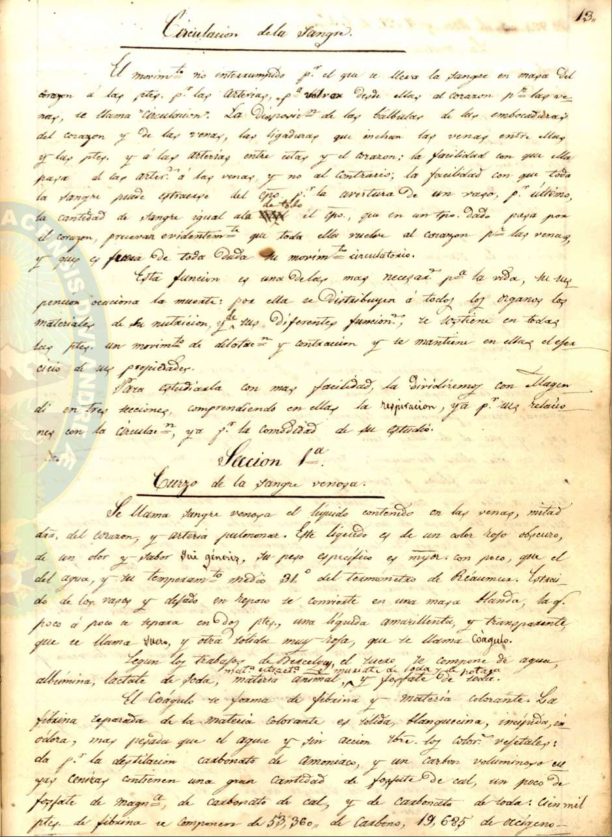 13.
Circulacion de la Sangre.
El movim.to no enterrumpido p.r el que se lleva la sangre en masa del
corazon á las ptes. p.r las arterias, p.a volver desde ellas al corazon p.r las ve-
nas, se llama "Circulacion". La disposic.n de las balbulas de las embocaduras
del corazon y de las venas, las ligaduras que inchan las venas entre ellas
y las ptes. y á las arterias entre estas y el corazon; la facilidad con que ella
pasa de las arter.s á las venas, y no al contrario; la facilidad con que toda
la sangre puede estraerse del cpo. p.r la avertura de un vaso, p.r último,
la cantidad de sangre igual ala de todo el cpo. que en un tpo. dado pasa por
el corazon, prueevan evidentem.te que toda ella vuelve al corazon p.r las venas,
y que es fuera de toda duda su movim.to circulatorio.
Esta funcion es una delas mas necesar.s p.a la vida, su sus
pencion ocaciona la muerte: por ella se distribuyen á todos los organos los
materiales de su nutricion, y de sus diferentes funcion.s, se sostiene en todas
sus ptes. un movim.to de dilatac.n y contraccion y se mantiene en ellas el eger
cicio de sus propiedades.
Para estudiarla con mas facilidad, la dividiremos con Magen
di en tres secciones, comprendiendo en ellas la respiracion, ya p.r sus relacio
nes con la circulac.n, ya p.r la comodidad de su estudio.
Seccion 1.a
Curzo de la sangre venosa.
Se llama sangre venosa el liquido contenido en las venas, mitad
dra. del corazon, y arteria pulmonar. Este liquido es de un color rojo obscuro,
de un olor y sabor sui generis, su peso especifico es myor. con poco, que el
del agua, y su temperam.to medio 31.o del termometro de Réaumur. Estrai
do de los vasos y dejado en reposo se convierte en una masa blanda, la q.e
poco á poco se separa en dos ptes., una liquida amarillenta, y transparente,
que se llama suero, y otra solida muy roja, que se llama Coágulo.
Segun los trabajos de Berceloy, el suero, se compone de agua,
albumina, lactate de soda, materia animal, y fosfate de soda.
El Coágulo se forma de fibrina y materia colorante. La
fibrina separada de la materia colorante es solida, blanquecina, incipida, in
odora, mas pesada que el agua y sin accion sbre. los color.s vejetales:
da p.r la destilacion carbonato de amoniaco, y un carbon voluminoso cu
yas cenizas contienen una gran cantidad de fosfate de cal, un poco de
fosfate de magn.a, de carbonato de cal, y de carbonato de soda: cien mil
ptes. de fibrina se componen de 53,360, de Carbono, 19,685 de ocsigeno-